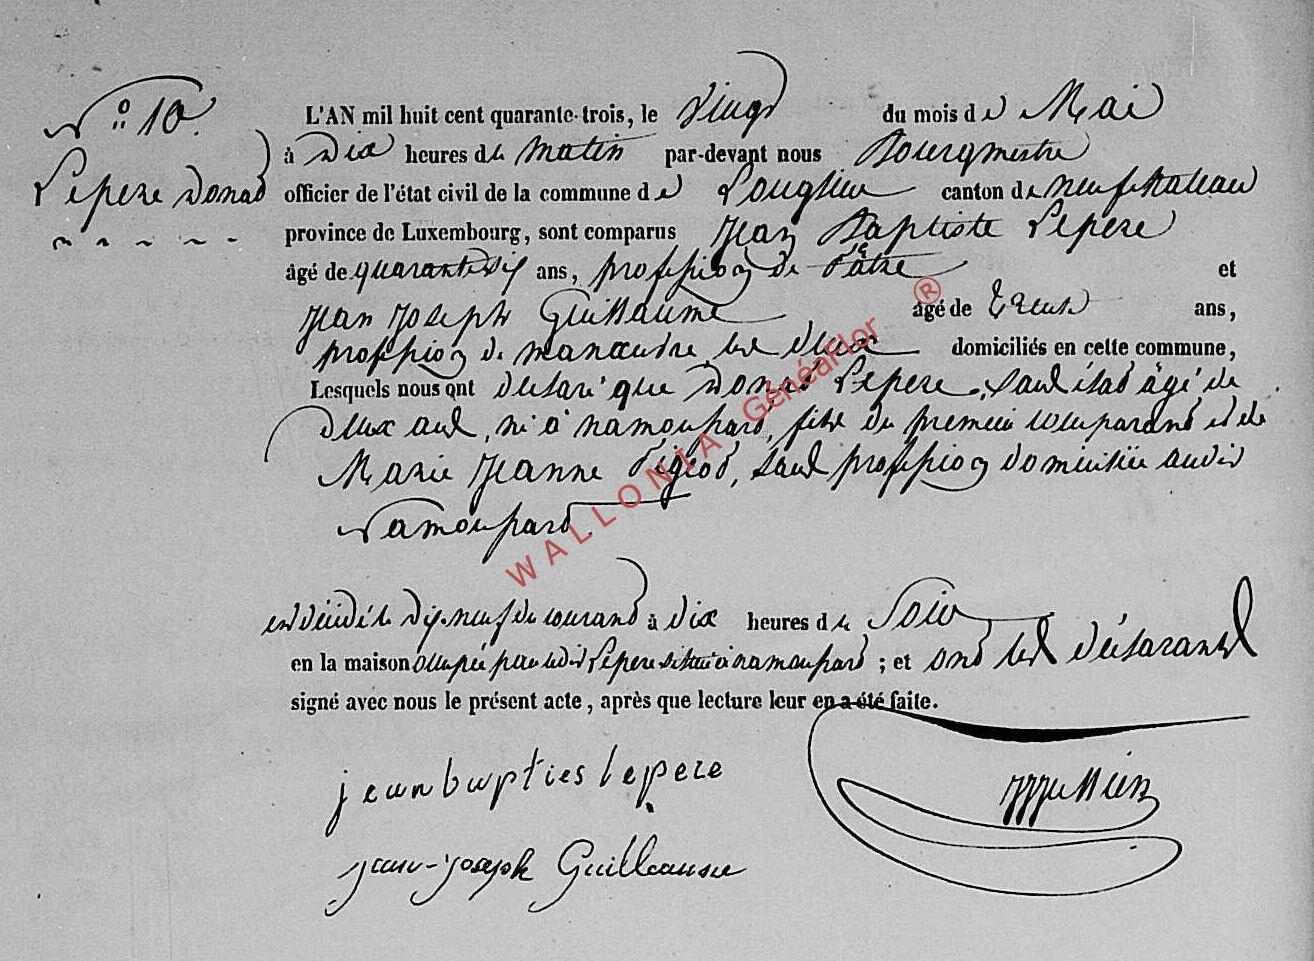 N° 10.
Lepere Donat
L'AN mil huit cent quarante-trois, le vingt du mois de Mai
à dix heures du matin par-devant nous Bourgmestre
officier de l'état civil de la commune de Longlier canton de neufchateau
province de Luxembourg, sont comparus Jean Baptiste Lepere
âgé de quarante six ans, profession de Pâtre et
Jean Joseph Guillaume âgé de trente ans,
profession de manœuvre, les deux domiciliés en cette commune,
Lesquels nous ont déclaré que Donat Lepere, sans état âgé de
deux ans, né à namoussart, fils du premier comparant et de
Marie Jeanne, sans profession domiciliée audit
Namoussart.
est décédé le dix-neuf du courant à dix heures du Soir
en la maison occupée par ledit Lepere située à namoussart ; et ont les déclarants
signé avec nous le présent acte, après que lecture leur en a été faite.
jean bapties lepere
jean-joseph Guillaume
WALLONIA GénéaFlor ®